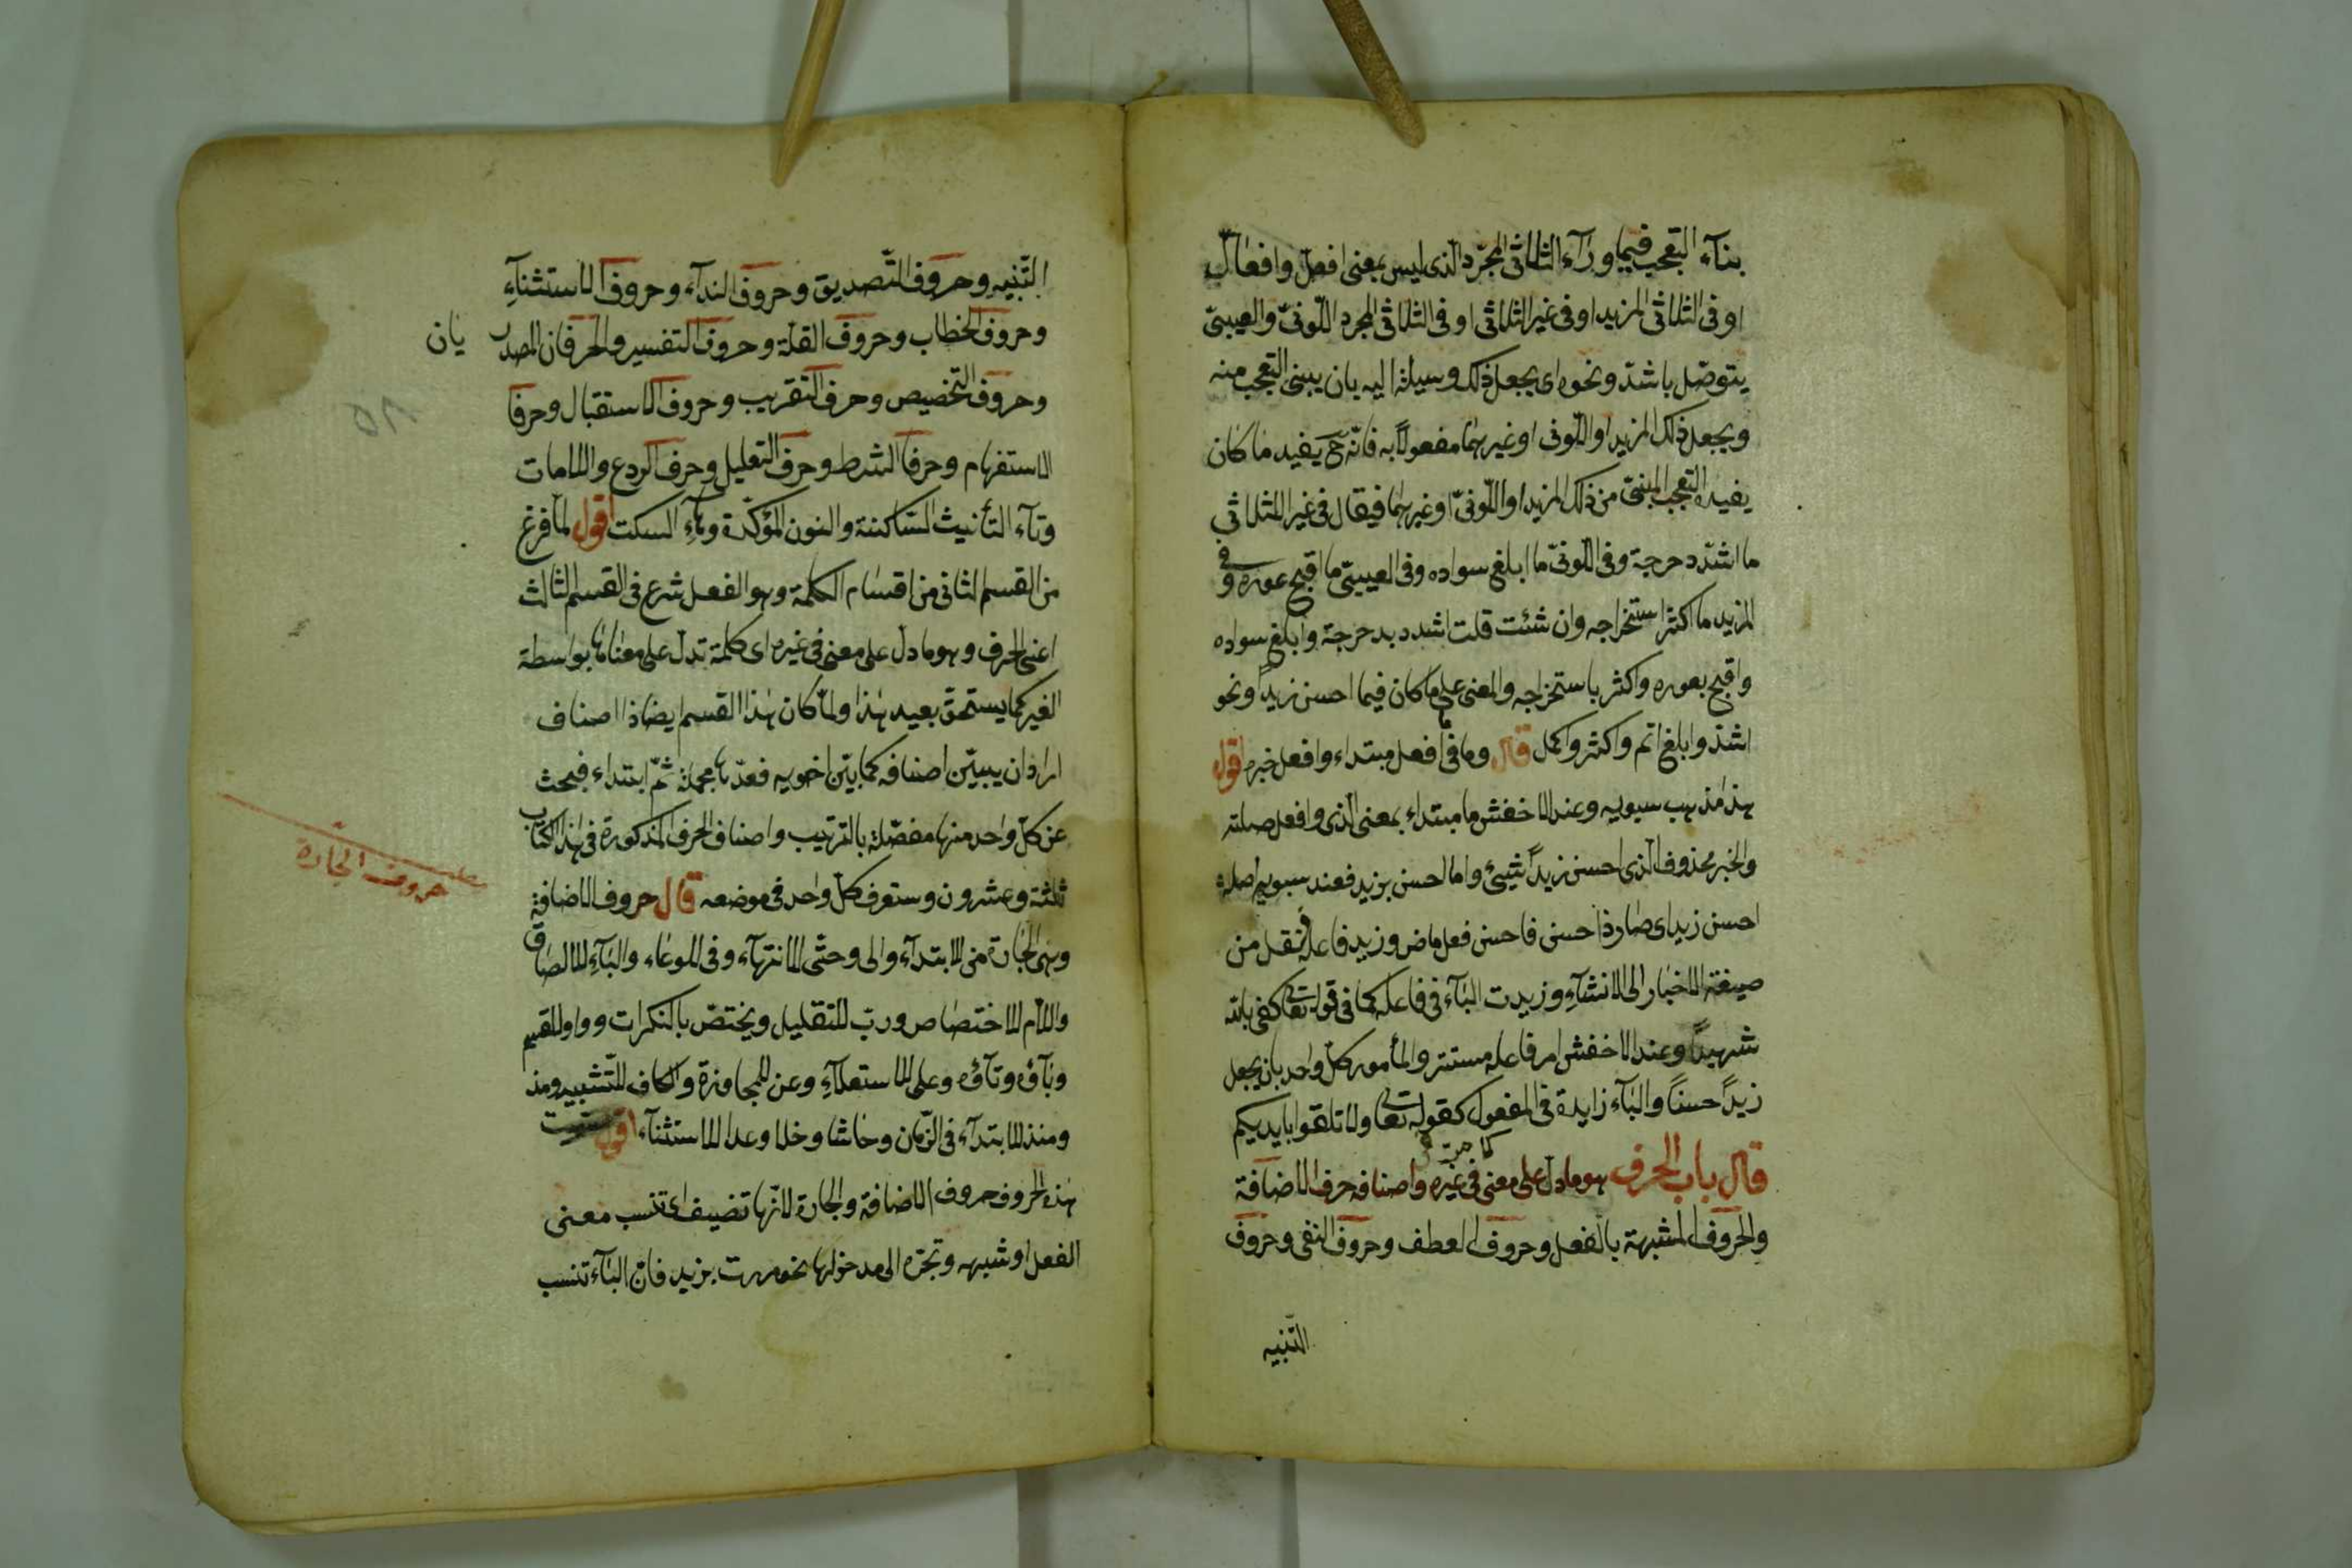 بنآء التعجب فيما ورآء الثلاثى المجرّد الذى ليس بمعنى افعلّ وافعالّ
او فى الثلاثى المزيد او فى غير الثلاثى او فى الثلاثى المجرد اللّونىّ والعيبىّ
يتوصّل باشدّ ونحوه اى يجعل ذلك وسيلة اليه بان يبنى التعجب منه
ويجعل ذلك المزيد او اللّونى او غيرهما مفعولاً به فانّه ح يفيد ما كان
يفيده التعجب المبنىّ من ذلك المزيد او اللّونىّ او غيرهما فيقال فى غير الثلاثى
ما اشدّ دحرجة وفى اللّونىّ ما ابلغ سواده وفى العيبىّ ما اقبح عوره وفى
المزيد ما اكثر استخراجه وان شئت قلت اشدد بدحرجة وابلغ سواده
واقبح بعوره واكثر باستخراجه والمعنى على ما كان فيما احسن زيداً ونحو
اشدّ وابلغ اتم واكثر واكمل قال وما فى ما افعل مبتداء وافعل خبره اقول
هذا مذهب سيبويه وعند الاخفش ما مبتداء بمعنى الذى وافعل صلته
والخبر محذوف الذى احسن زيداً شيئ واما احسن بزيد فعند سيبويه اصله
احسن زيد اى صار ذا حسن فاحسن فعل ماض وزيد فاعله نقل من
صيغة الاخبار الى الانشآء وزيدت البآء فى فاعله كما فى قوله تعا كفى بالله
شهيداً وعند الاخفش امر فاعله مستتر والمأمور كل واحد بان يجعل
زيداً حسناً والبآء زايدة فى المفعول كقوله تعا ولا تلقوا بايديكم
قال باب الحرف هو ما دلّ على معنى فى غيره واصنافه حرف الاضافة
والحروف المشبهة بالفعل وحروف العطف وحروف النفى وحروف
التنبيه
التّنبيه وحروف التّصديق وحروف الندآء وحروف الاستثنآء
وحروف الخطاب وحروف القلّة وحروف التفسير والحرفان المصدر يان
وحروف التخصيص وحرف التقريب وحروف الاستقبال وحرفا
الاستفهام وحرفا الشرط وحرف التعليل وحرف الردع واللامات
وتآء التأنيث السّاكنة والنون المؤكّدة وهآء السكت اقول لمّا فرغ
من القسم الثانى من اقسام الكلمة وهو الفعل شرع فى القسم الثالث
اعنى الحرف وهو ما دلّ على معنى فى غيره اى كلمة تدلّ على معناها بواسطة
الغير كما يستحقّ بعيد هذا ولمّا كان هذا القسم ايضا ذا اصناف
اراد ان يبيّن اصنافه كما بيّن اخويه فعدّها مجملة ثمّ ابتداء فبحث
عن كلّ واحد منها مفصّلة بالترتيب واصناف الحرف المذكورة فى هذا الكتاب
ثلثة وعشرون وستعرف كلّ واحد فى موضعه قال حروف الاضافة
وهى الجارة من للابتدآء والى وحتّى للانتهآء وفى للوعاء والبآء للالصاق
واللام للاختصاص وربّ للتقليل ويختصّ بالنكرات وواو للقسم
وبآؤه وتآؤه وعلى للاستعلآء وعن للمجاوزة والكاف للتّشبيه ومذ
ومنذ للابتدآء فى الزّمان وحاشا وخلا وعدا للاستثنآء اقول سمّيت
هذه الحروف حروف الاضافة والجارة لانّها تضيف اى تنسب معنى
الفعل او شبهه وتجرّه الى مدخولها نحو مررت بزيد فانّ البآء تنسب
حروف الجارّة